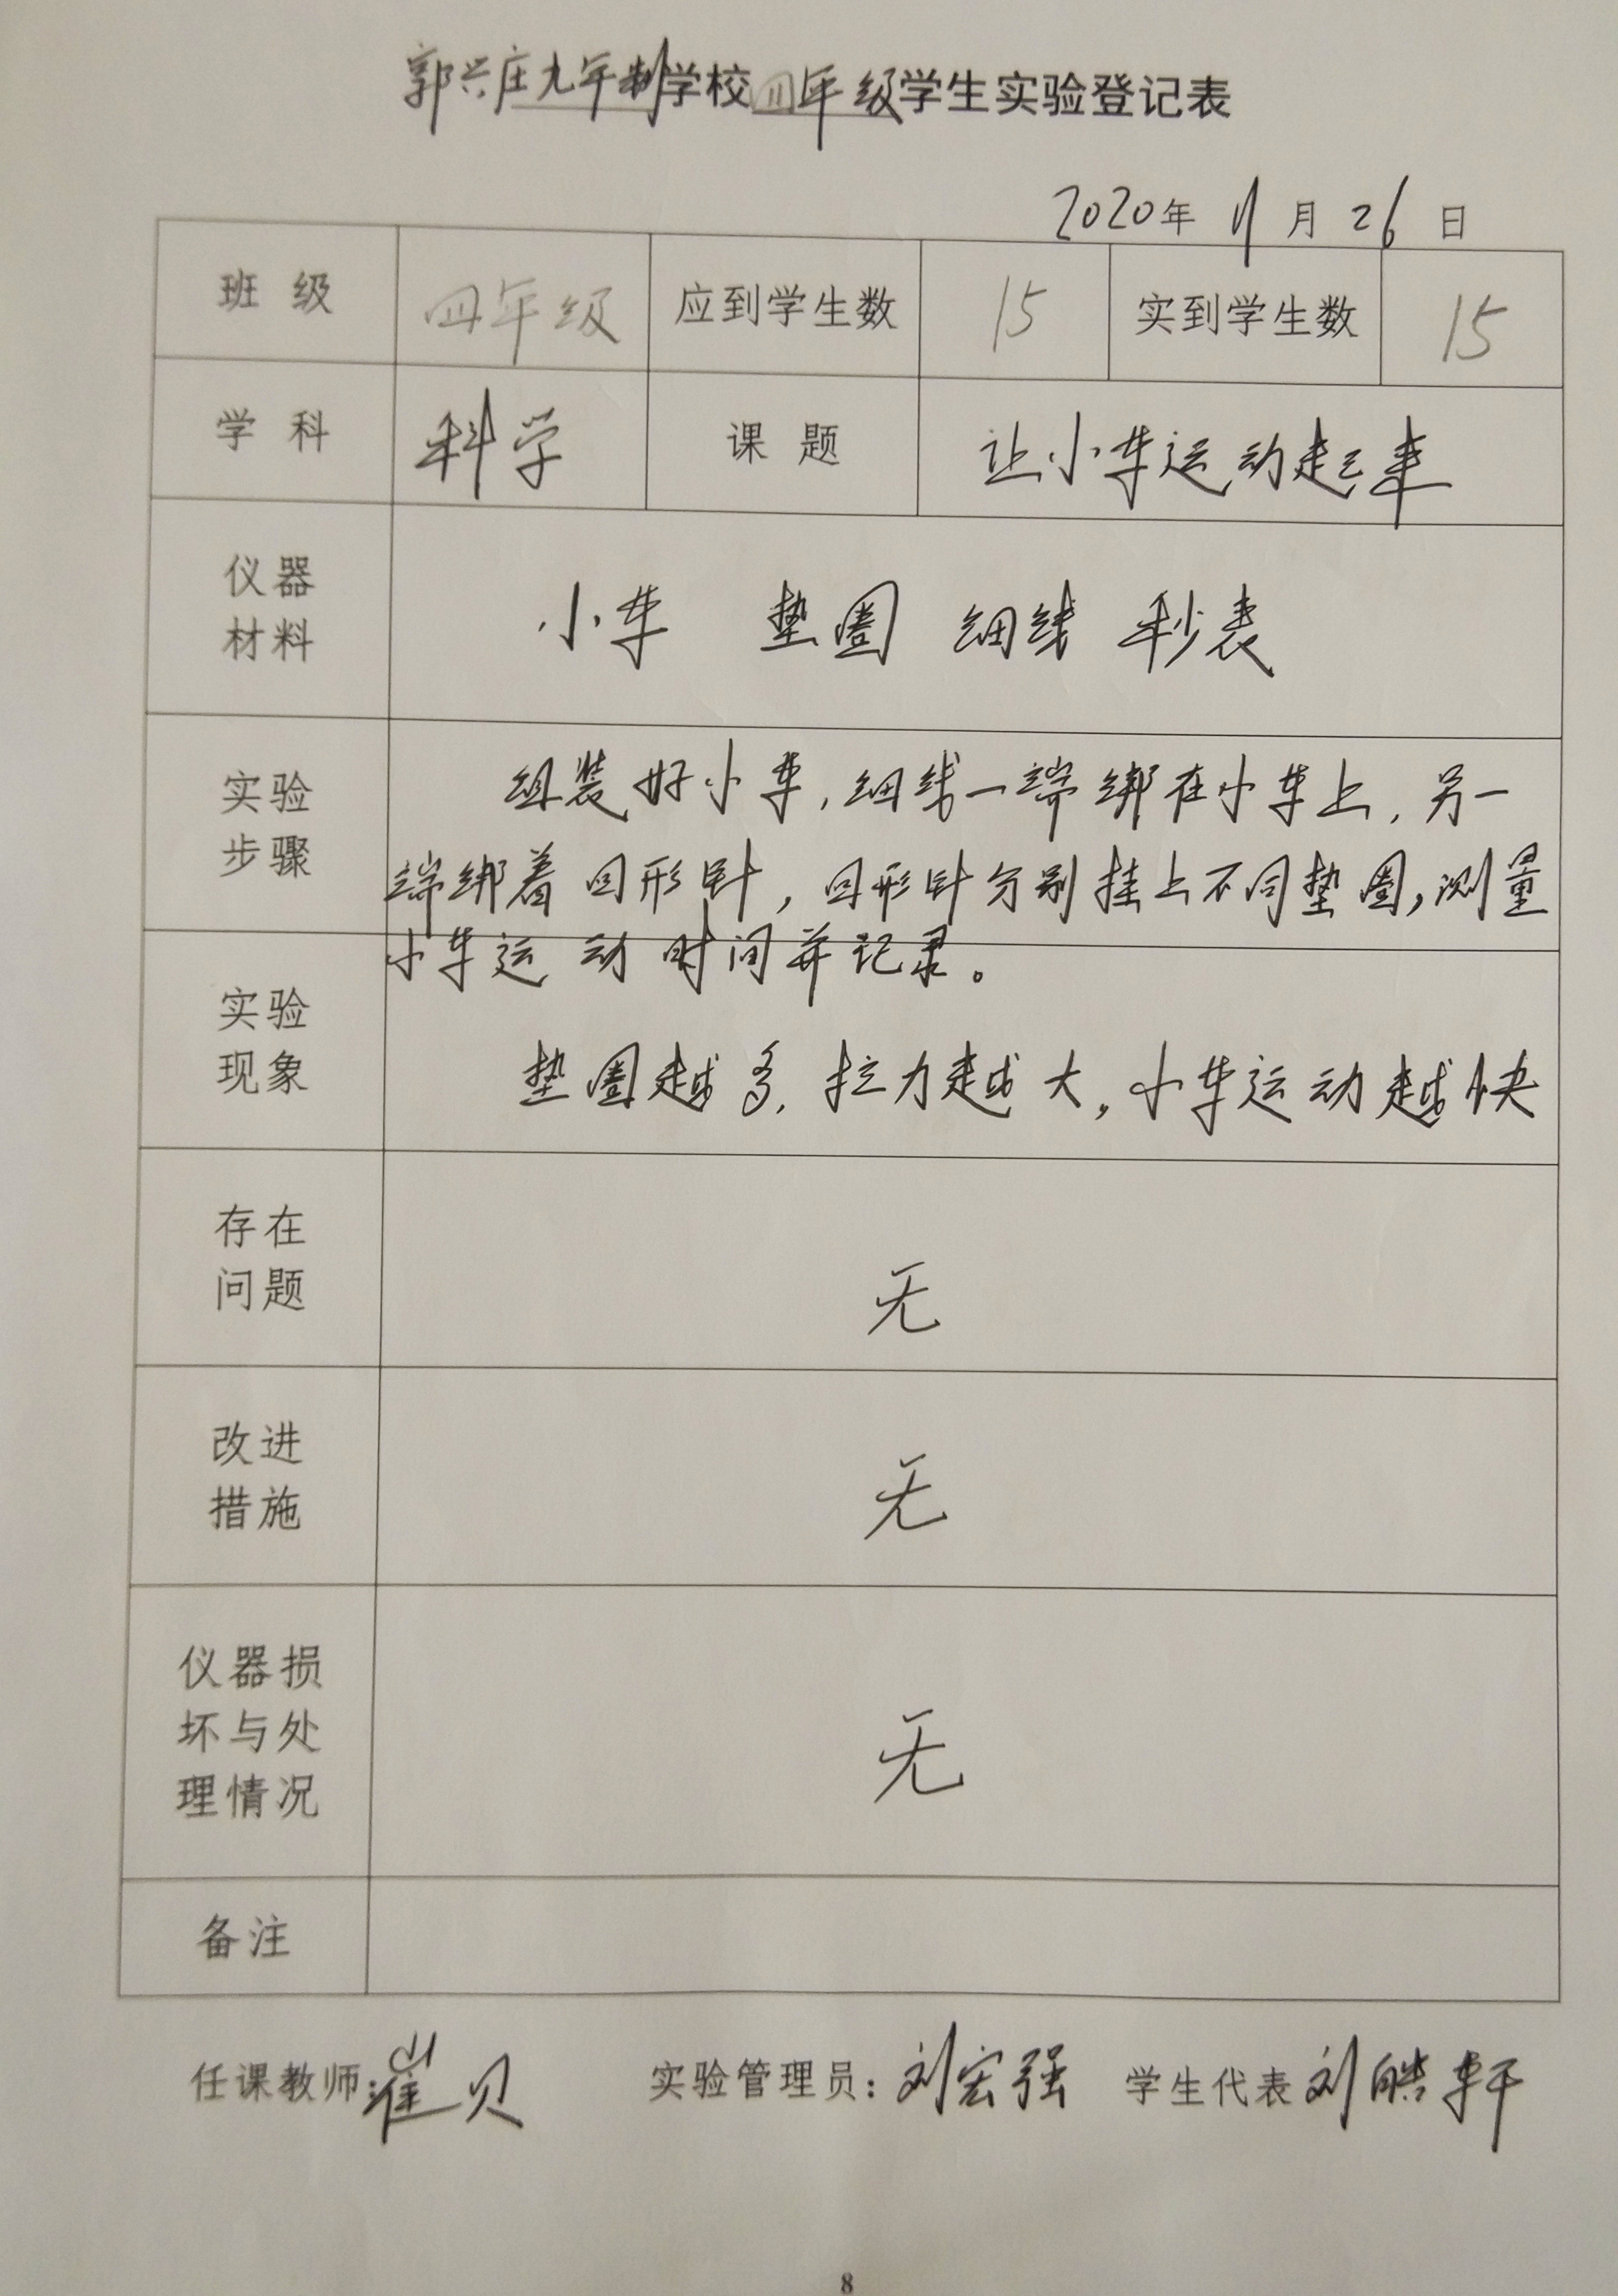 郭兴庄九年制学校四年级学生实验登记表
2020年 11月 26日
班 级 四年级 应到学生数 15 实到学生数 15
学 科 科学 课 题 让小车运动起来
仪器
材料
小车 垫圈 细线 秒表
实验
步骤
组装好小车,细线一端绑在小车上,另一
端绑着回形针,回形针分别挂上不同垫圈,测量
小车运动时间并记录。
实验
现象
垫圈越多,拉力越大,小车运动越快
存在
问题
无
改进
措施
无
仪器损
坏与处
理情况
无
备注
任课教师:崔贝 实验管理员:刘宏强 学生代表 刘皓轩
8